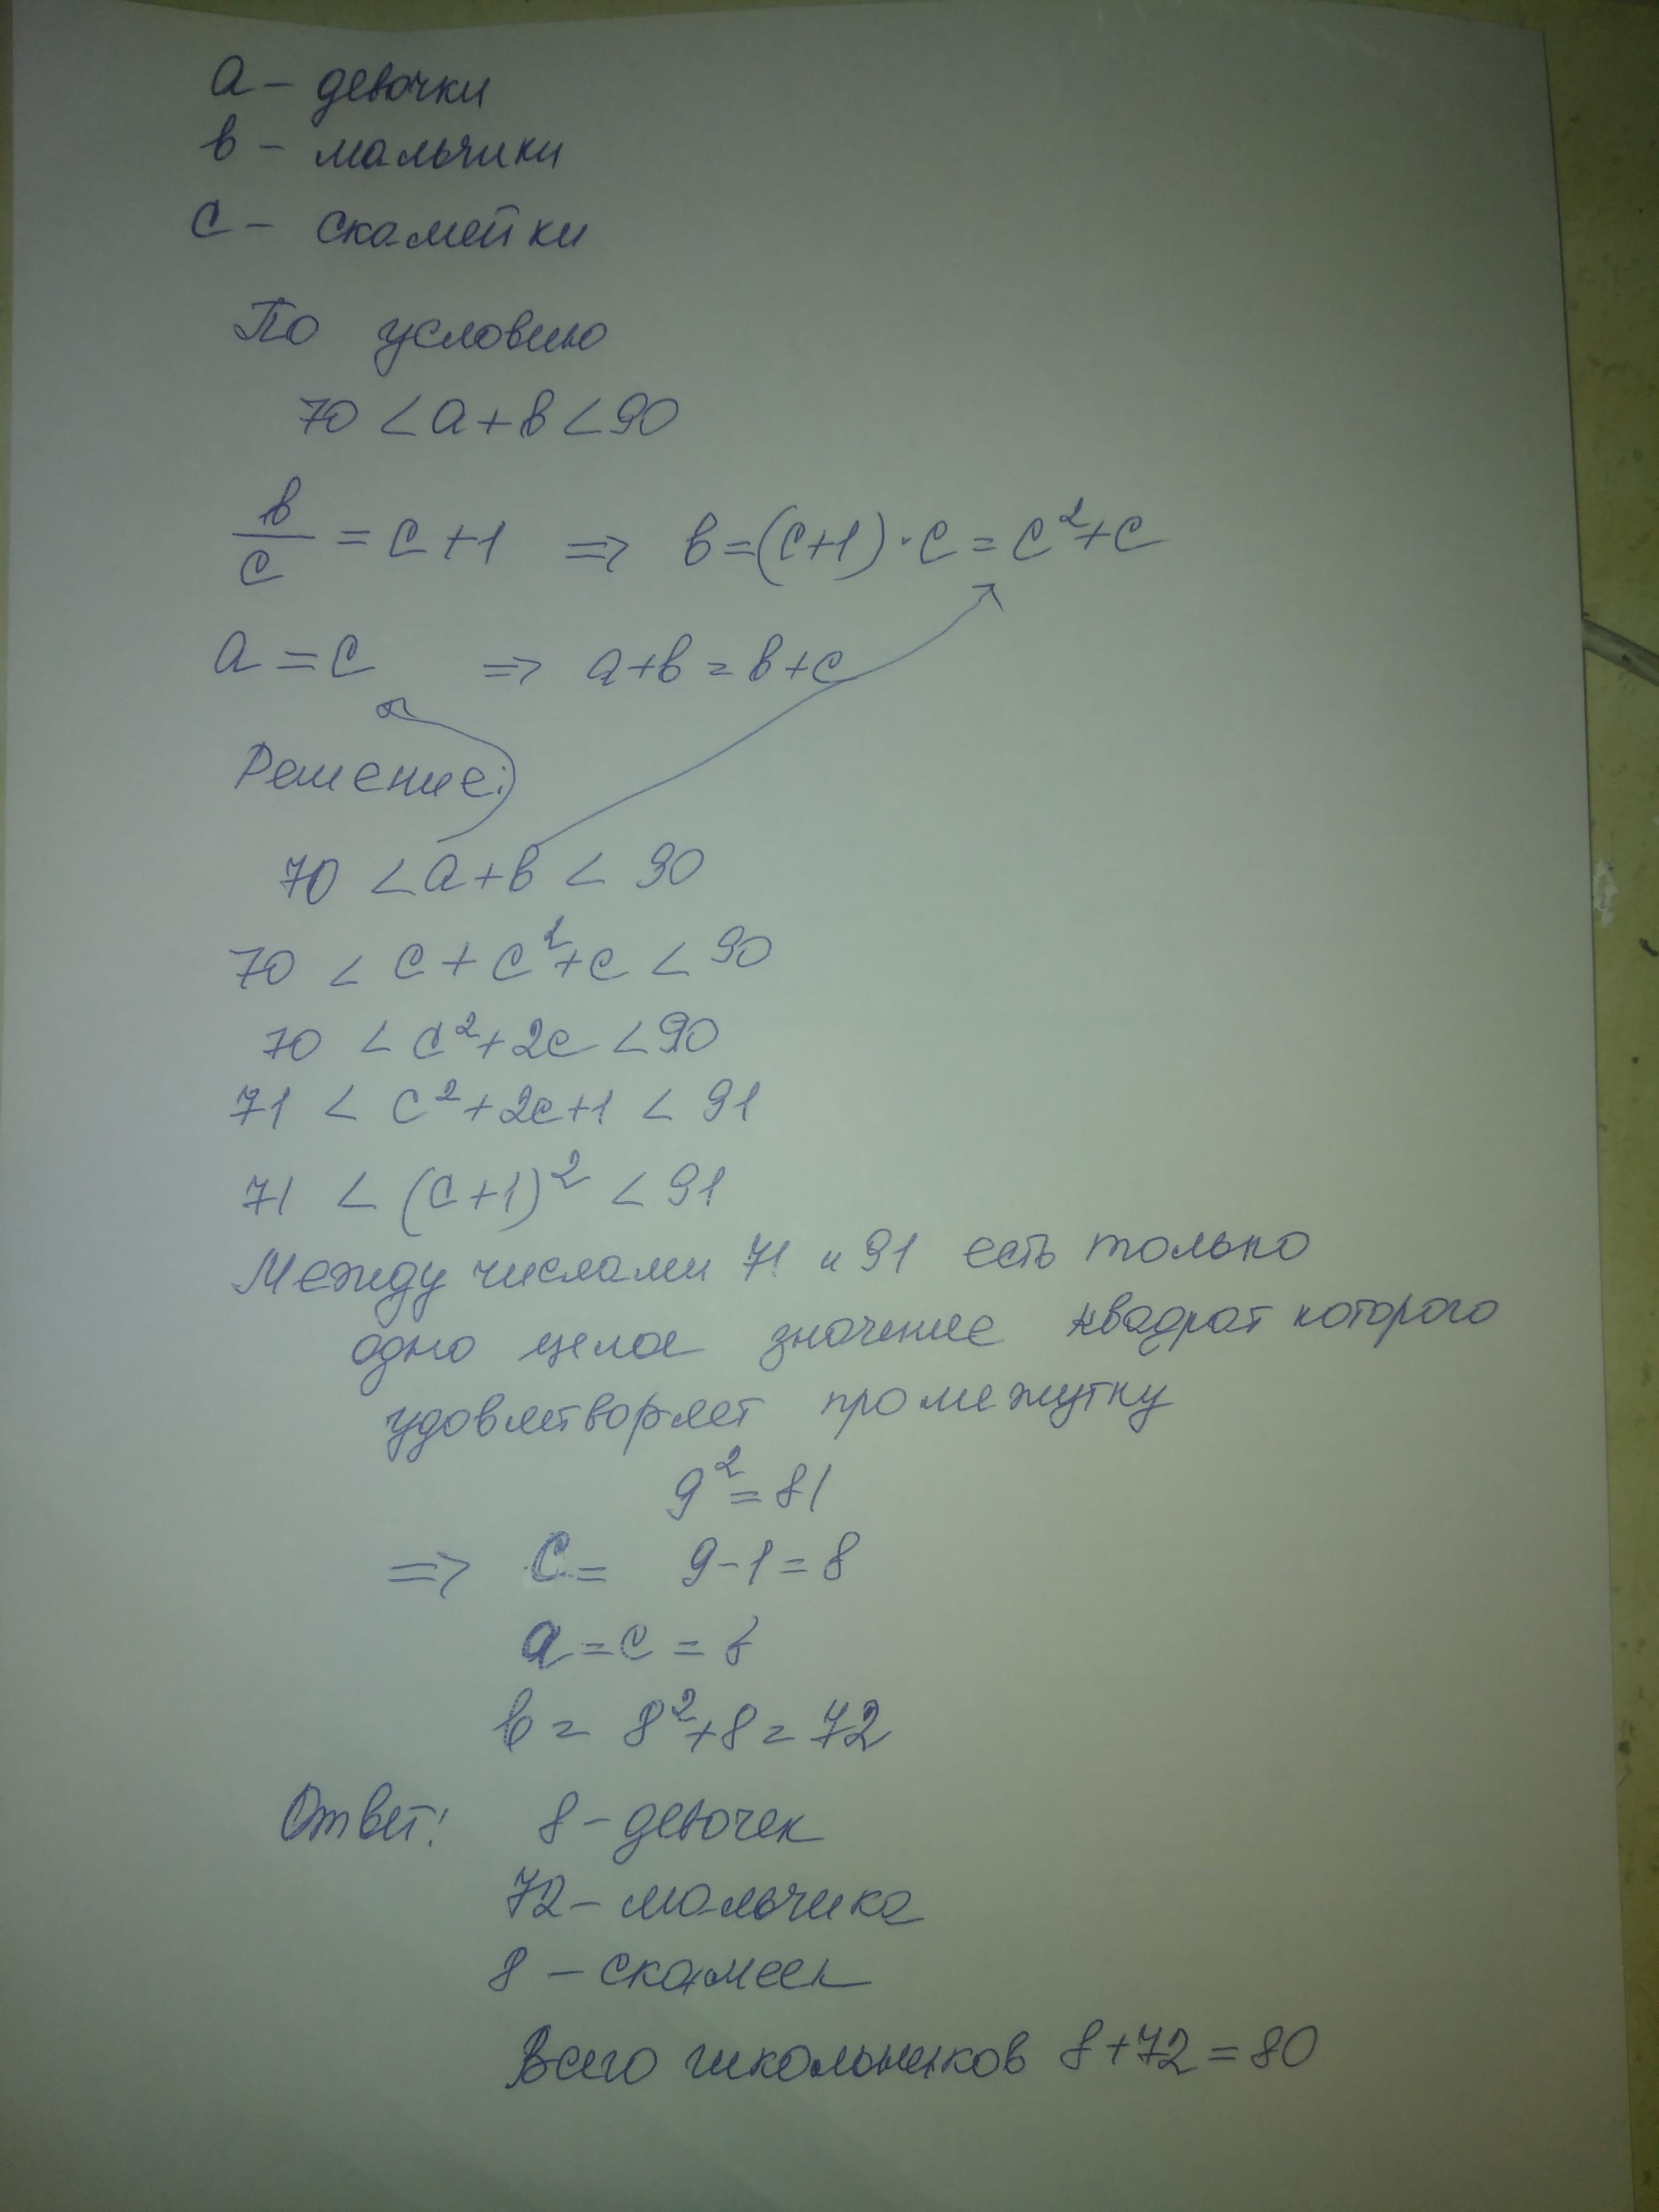 a – девочки
в – мальчики
c – скамейки
По условию
70 < a + в < 90
в/c = c + 1 ⇒ в = (c+1) · c = c² + c
a = c ⇒ a + в = в + c
Решение:
70 < a + в < 90
70 < c + c² + c < 90
70 < c² + 2c < 90
71 < c² + 2c + 1 < 91
71 < (c + 1)² < 91
Между числами 71 и 91 есть только
одно целое значение квадрат которого
удовлетворяет промежутку
9² = 81
⇒ c = 9 – 1 = 8
a = c = 8
в = 8² + 8 = 72
Ответ: 8 – девочек
72 – мальчика
8 – скамеек
Всего школьников 8 + 72 = 80